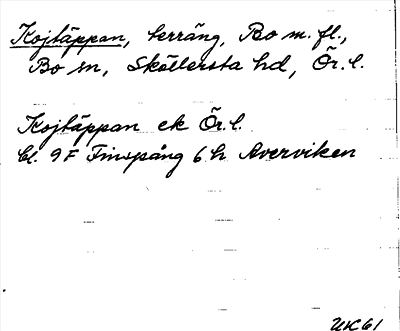 Kojtäppan, terräng, Bo m. fl.,
Bo sn, Sköllersta hd, Ör. l.
Kojtäppan ek Ör. l.
bl. 9 F Finspång 6 h Averviken
UK61